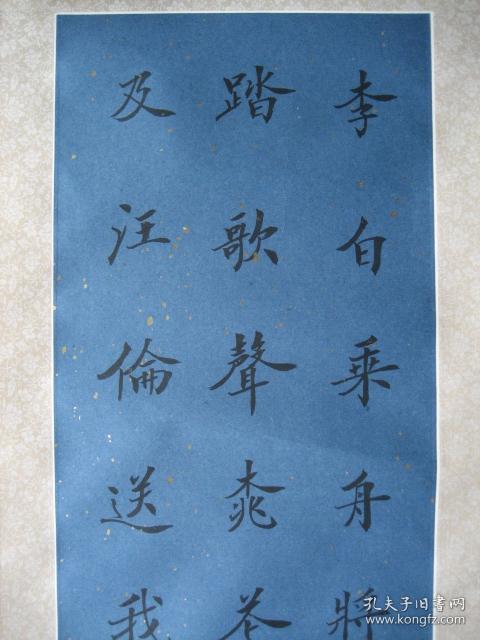 李白乘舟將
踏歌聲桃花
及汪倫送我
孔夫子旧书网
www.kongfz.com